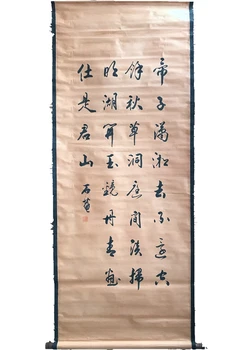 帝子瀟湘去不還空
餘秋草洞庭間淡掃
明湖開玉鏡丹青畫
仕是君山 石菴